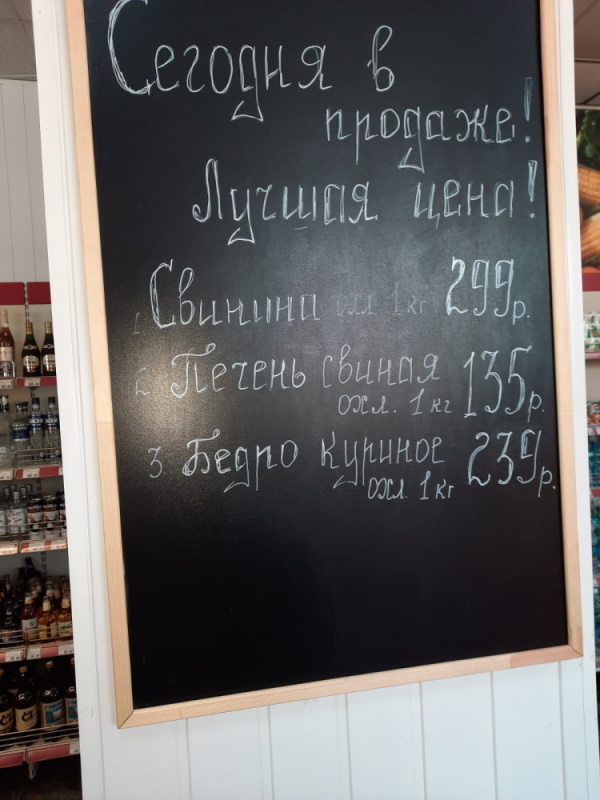 Сегодня в
продаже!
Лучшая цена!
1 Свинина охл 1кг 299р.
2 Печень свиная 135р.
охл. 1кг
3 Бедро куриное 239р.
охл. 1кг